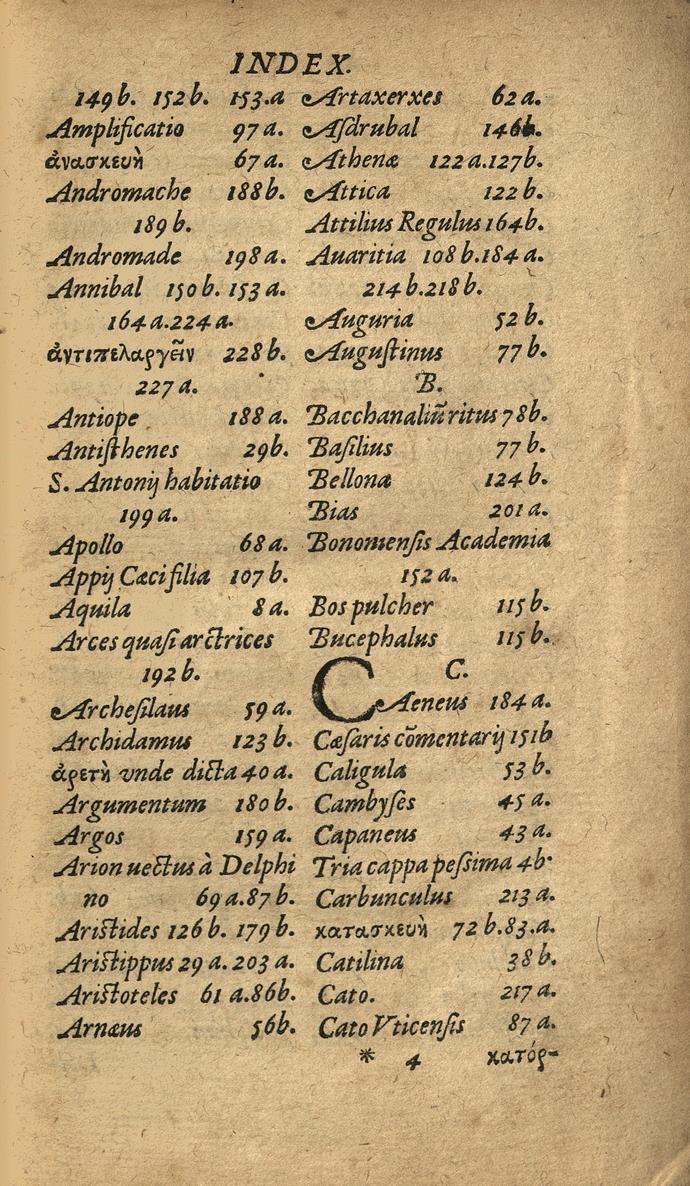 INDEX.
149 b. 152 b. 153.a
Amplificatio 97 a.
ἀνασκευὴ 67 a.
Andromache 188 b.
189 b.
Andromade 198 a.
Annibal 150 b. 153 a.
164 a.224 a.
ἀντιπελαργεῖν 228 b.
227 a.
Antiope 188 a.
Antiſthenes 29b.
S. Antonij habitatio
199 a.
Apollo 68 a.
Appij Cæci filia 107 b.
Aquila 8 a.
Arces quaſi arctrices
192 b.
Archeſilaus 59 a.
Archidamus 123 b.
ἀρετὴ vnde dicta 40 a.
Argumentum 180 b.
Argos 159 a.
Arion uectus à Delphi
no 69 a.87 b.
Ariſtides 126 b. 179 b.
Ariſtippus 29 a. 203 a.
Ariſtoteles 61 a.86b.
Arnæus 56b.
Artaxerxes 62 a.
Aſdrubal 146b.
Athenæ 122 a.127b.
Attica 122 b.
Attilius Regulus 164b.
Auaritia 108 b.184 a.
214 b.218 b.
Auguria 52 b.
Auguſtinus 77 b.
B.
Bacchanaliũ ritus 78b.
Baſilius 77 b.
Bellona 124 b.
Bias 201 a.
Bononienſis Academia
152 a.
Bos pulcher 115 b.
Bucephalus 115 b.
C.
CAeneus 184 a.
Cæſaris cõmentarij 151b
Caligula 53 b.
Cambyſes 45 a.
Capaneus 43 a.
Tria cappa peſsima 4b.
Carbunculus 213 a.
κατασκευὴ 72 b.83.a.
Catilina 38 b.
Cato. 217 a.
Cato Vticenſis 87 a.
* 4 κατόρ-